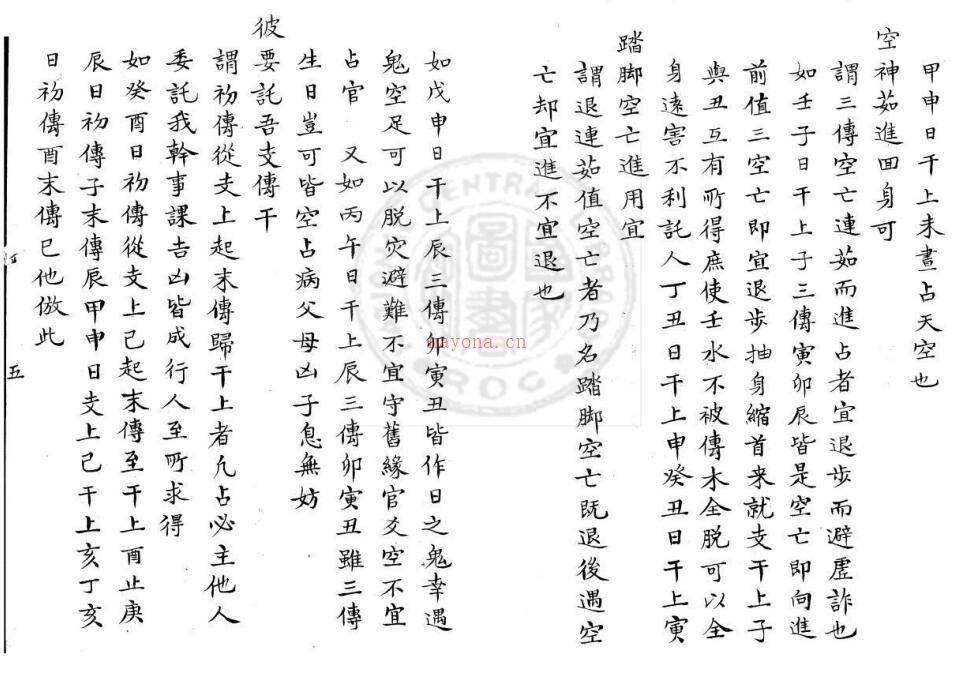 甲申日干上未晝占天空也
空神茹進回身可
謂三傳空亡連茹而進占者宜退步而避虛詐也
如壬子日干上子三傳寅卯辰皆是空亡即向進
前值三空亡即宜退步抽身縮首来就支干上子
與丑互有所得庶使壬水不被傳木全脫可以全
身遠害不利託人丁丑日干上申癸丑日干上寅
踏脚空亡進用宜
謂退連茹值空亡者乃名踏脚空亡既退後遇空
亡却宜進不宜退也
如戊申日干上辰三傳卯寅丑皆作日之鬼幸遇
鬼空足可以脫灾避難不宜守舊緣官爻空不宜
占官　又如丙午日干上辰三傳卯寅丑雖三傳
生日豈可皆空占病父母凶子息無妨
彼要託吾支傳干
謂初傳從支上起末傳歸干上者凢占必主他人
委託我幹事課吉凶皆成行人至所求得
如癸酉日初傳從支上己起末傳至干上酉止庚
辰日初傳子末傳辰甲申日支上己干上亥丁亥
日初傳酉末傳巳他倣此
五
CENTRAL
ROC
nayona.cn